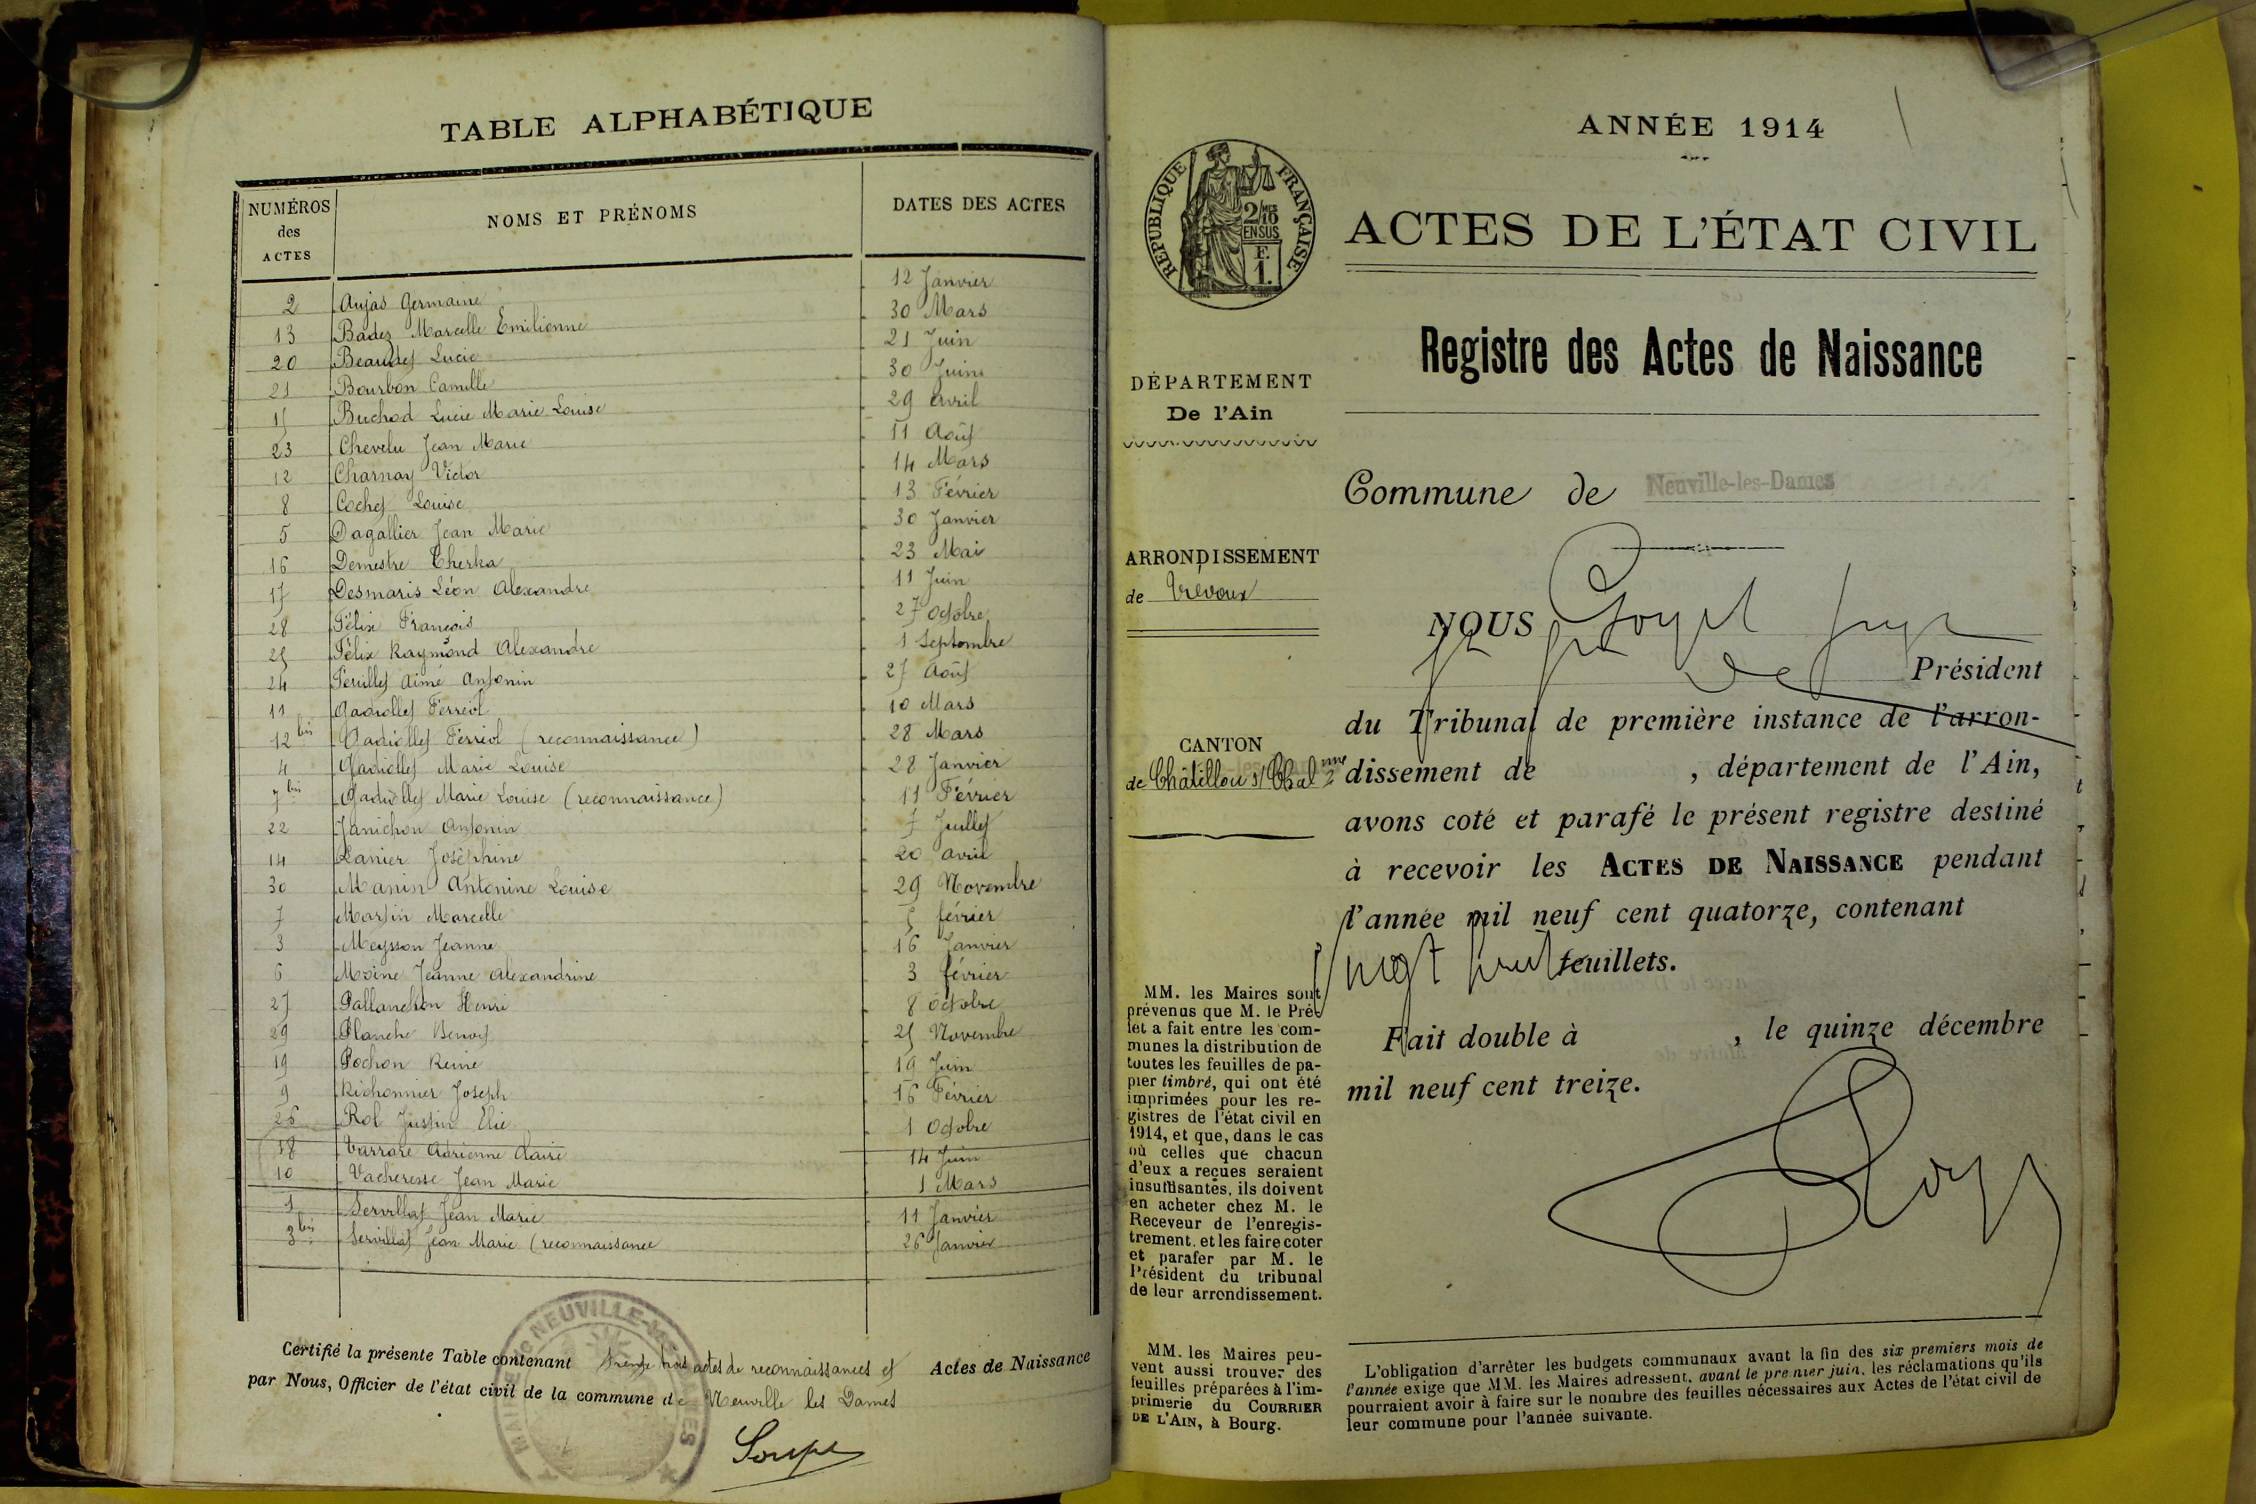 TABLE ALPHABÉTIQUE
NUMÉROS des ACTES NOMS ET PRÉNOMS DATES DES ACTES
2 Aujas Germaine 12 Janvier
13 Badez Marcelle Emilienne 30 Mars
20 Beaudet Lucie 21 Juin
21 Bourbon Camille 30 Juin
15 Buchod Lucie Marie Louise 29 Avril
23 Chevelu Jean Marie 11 Août
12 Charnay Victor 14 Mars
8 Cochet Louise 13 Février
5 Dagallier Jean Marie 30 Janvier
16 Demestre Cherka 23 Mai
17 Desmaris Léon Alexandre 11 Juin
28 Félix François 27 Octobre
25 Félix Raymond Alexandre 1 Septembre
24 Feuillet Aimé Antonin 27 Août
11 Gadiollet Ferréol 10 Mars
12 bis Gadiollet Ferréol (reconnaissance) 28 Mars
4 Gadiollet Marie Louise 28 Janvier
7 bis Gadiollet Marie Louise (reconnaissance) 11 Février
22 Janichon Antonin 7 Juillet
14 Lanier Joséphine 20 Avril
30 Manin Antonine Louise 29 Novembre
7 Martin Marcelle 5 février
3 Meysson Jeanne 16 Janvier
6 Moine Jeanne Alexandrine 3 février
27 Pallanchon Henri 8 Octobre
29 Planche Benoit 25 Novembre
19 Pochon Reine 19 Juin
9 Richonnier Joseph 16 Février
26 Rol Justin Elie 1 Octobre
18 Adrienne Claire 14 Juin
10 Vacheresse Jean Marie 1 Mars
1 Servillat Jean Marie 11 Janvier
3 bis Servillat Jean Marie (reconnaissance 26 Janvier
Certifié la présente Table contenant trente trois actes de reconnaissances et Actes de Naissance
par Nous, Officier de l'état civil de la commune de Neuville les Dames
MAIRIE DE NEUVILLE-LES-DAMES
ANNÉE 1914
RÉPUBLIQUE FRANÇAISE
2/10 MES
EN SUS
F.
1.
ACTES DE L'ÉTAT CIVIL
Registre des Actes de Naissance
DÉPARTEMENT
De l'Ain
Commune de Neuville-les-Dames
ARRONDISSEMENT
de Trévoux
CANTON
de Châtillon s/ Chal nne
NOUS Goyet juge
Président
du Tribunal de première instance de l'arron-
dissement de , département de l'Ain,
avons coté et parafé le présent registre destiné
à recevoir les ACTES DE NAISSANCE pendant
l'année mil neuf cent quatorze, contenant
vingt huit feuillets.
Fait double à , le quinze décembre
mil neuf cent treize.
MM. les Maires sont
prévenus que M. le Pré-
fet a fait entre les com-
munes la distribution de
toutes les feuilles de pa-
pier timbré, qui ont été
imprimées pour les re-
gistres de l'état civil en
1914, et que, dans le cas
où celles que chacun
d'eux a reçues seraient
insuffisantes, ils doivent
en acheter chez M. le
Receveur de l'enregis-
trement, et les faire coter
et parafer par M. le
Président du tribunal
de leur arrondissement.
MM. les Maires peu-
vent aussi trouver des
feuilles préparées à l'im-
primerie du COURRIER
DE L'AIN, à Bourg.
L'obligation d'arrêter les budgets communaux avant la fin des six premiers mois de
l'année exige que MM. les Maires adressent, avant le premier juin, les réclamations qu'ils
pourraient avoir à faire sur le nombre des feuilles nécessaires aux Actes de l'état civil de
leur commune pour l'année suivante.